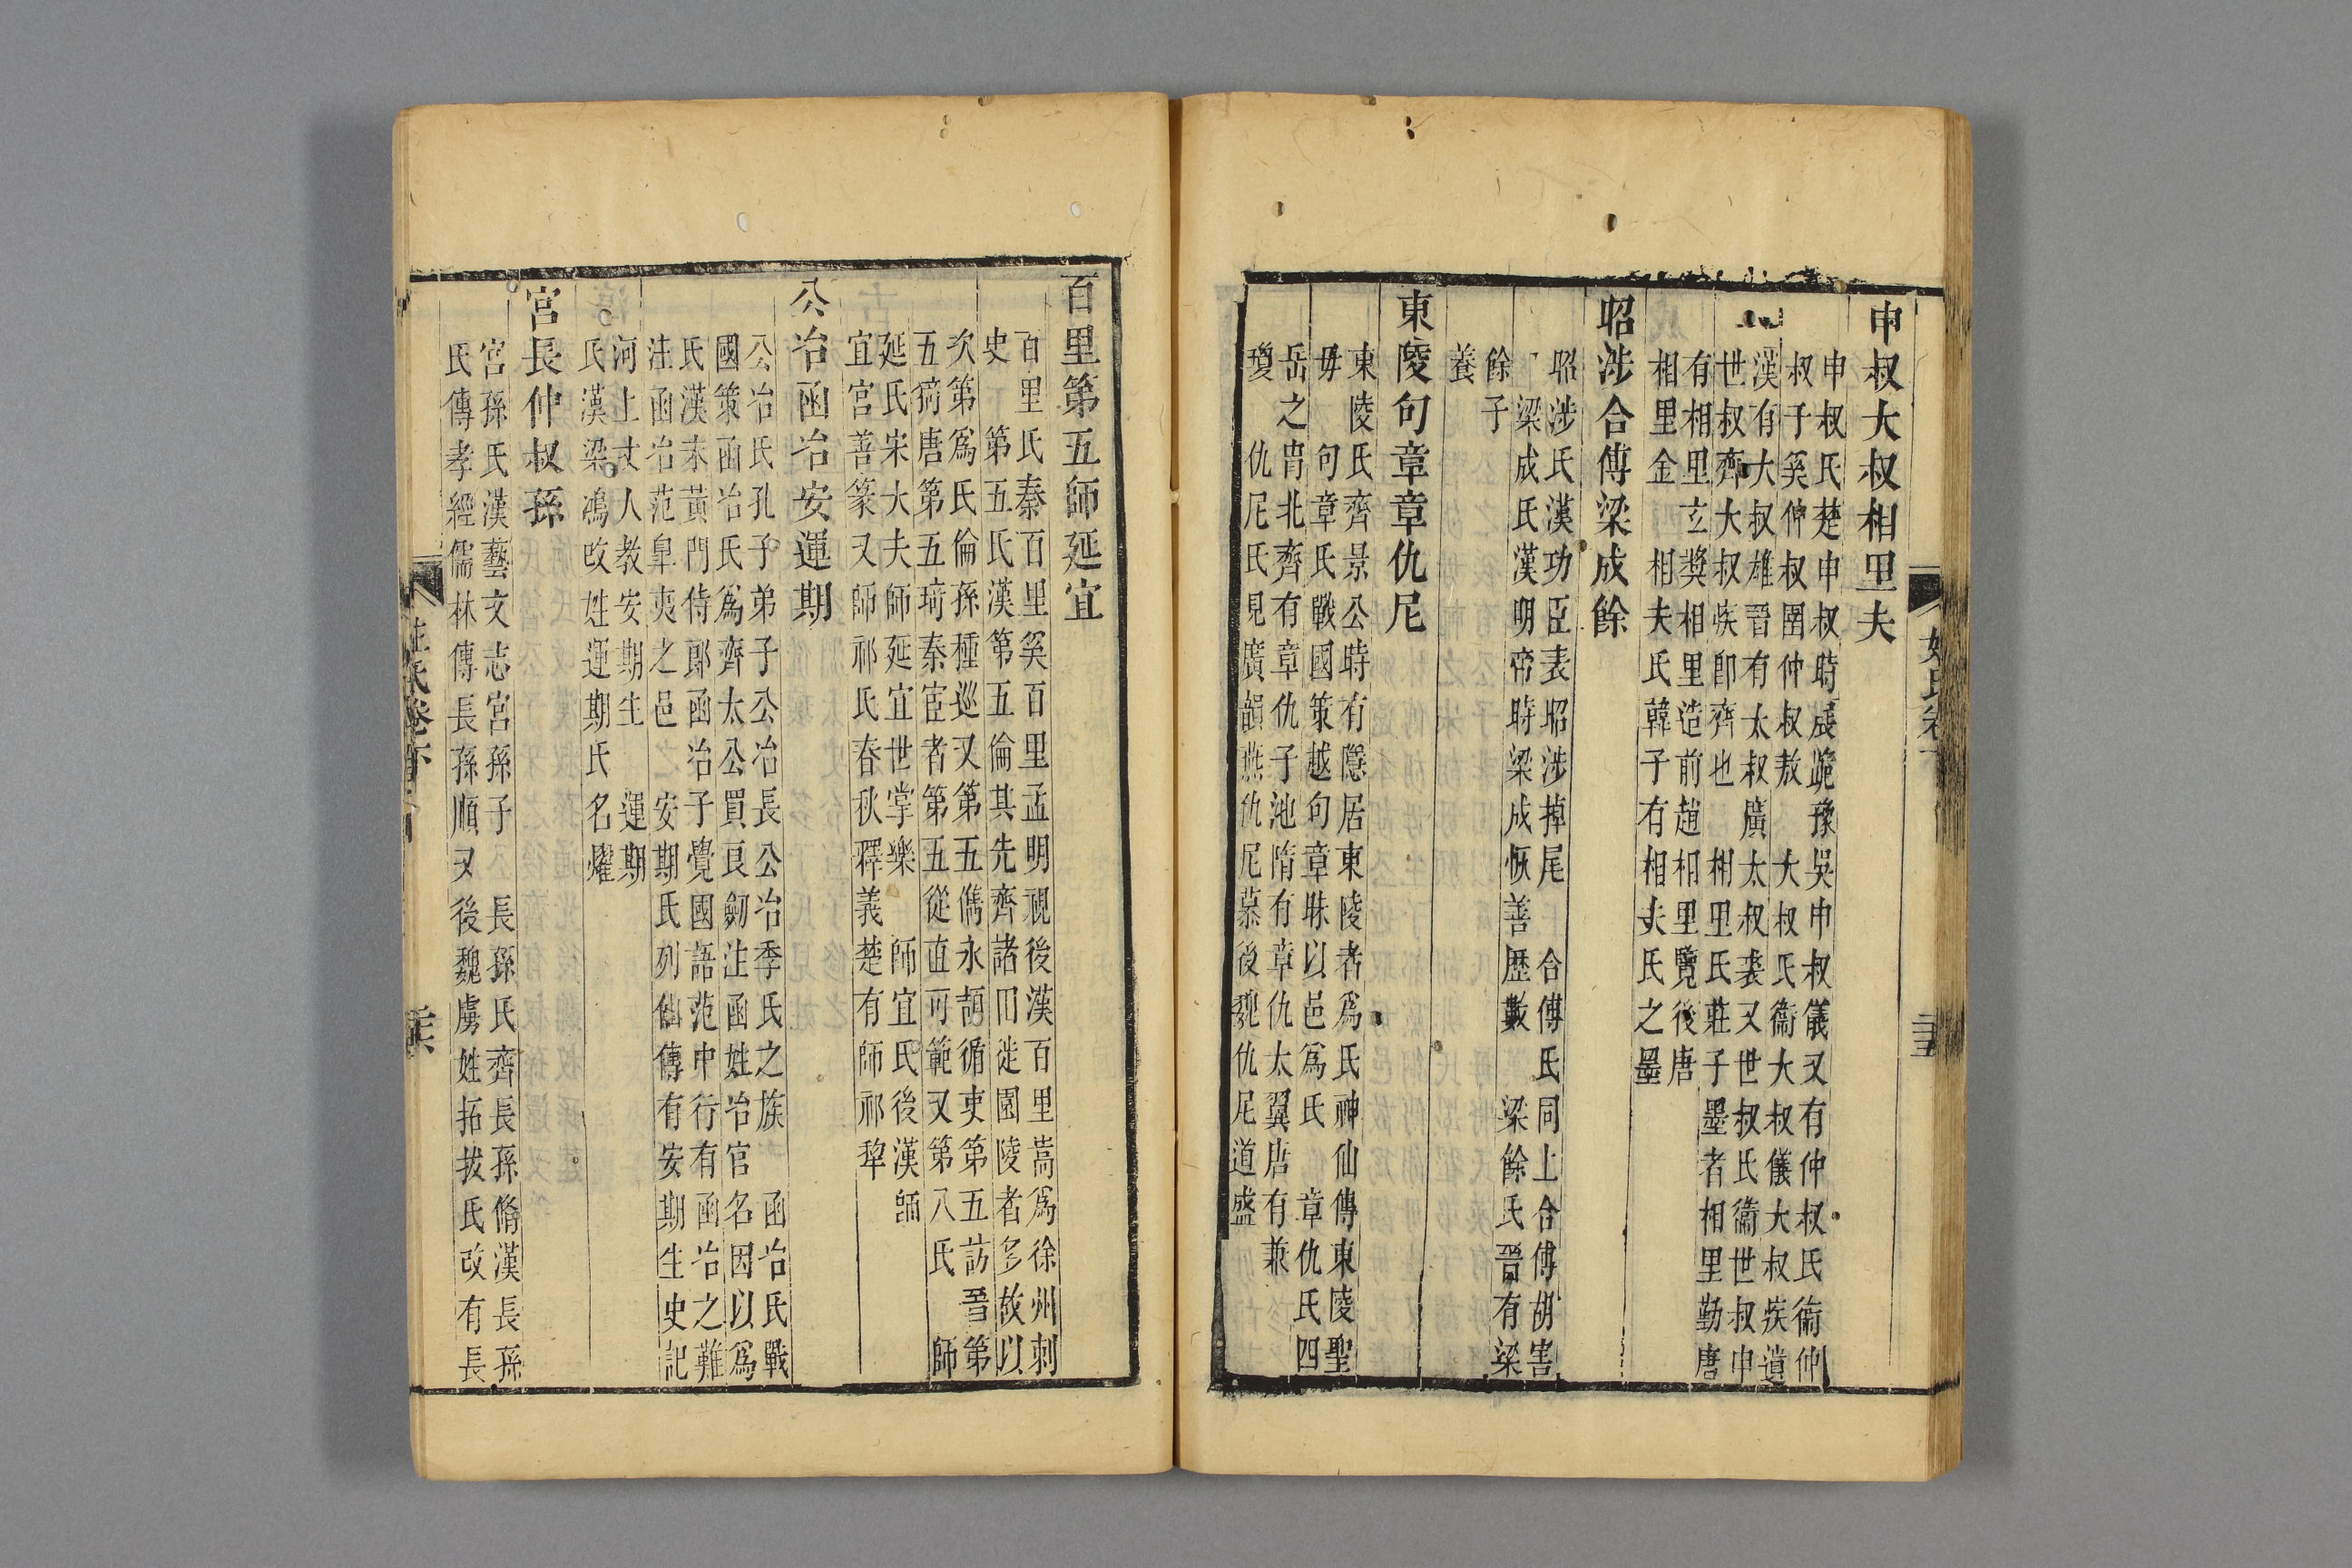 申叔大叔相里夫
申叔氏楚申叔時成跪豫吳申叔儀又有仲叔氏衞仲
叔于奚仲叔圉仲叔敖 大叔氏衞大叔儀大叔疾遺
漢有大叔雄晉有太叔廣太叔裘又世叔氏衞世叔申
世叔齊大叔疾卽齊也 相里氏莊子墨者相里勤唐
有相里玄奬相里造前趙相里覽後唐
相里金 相夫氏韓子有相夫氏之墨
昭涉合傅梁成餘
昭涉氏漢功臣表昭涉掉尾 合傅氏同上合傅胡害
梁成氏漢明帝時梁成恢善歷數 梁餘氏晉有梁
餘子
養
東陵句章章仇尼
東陵氏齊景公時有隱居東陵者爲氏神仙傳東陵聖
毋 句章氏戰國策越句章昧以邑爲氏 章仇氏四
岳之胄北齊有章仇子沲隋有章仇太翼唐有兼
瓊 仇尼氏見廣韻燕仇尼慕後魏仇尼道盛
百里第五師延宜
百里氏秦百里奚百里孟明視後漢百里嵩爲徐州刺
史 第五氏漢第五倫其先齊諸田徙園陵者多故以
次第爲氏倫孫種巡又第五儁永頡循吏第五訪晉第
五猗唐第五琦秦宦者第五從直可範又第八氏 師
延氏宋大夫師延宜世掌樂 師宜氏後漢師
宜官善篆又師祁氏春秋釋義楚有師祁犂
公冶函冶安運期
公冶氏孔子弟子公冶長公冶季氏之族 函冶氏戰
國策函冶氏爲齊太公買良劒注函姓冶官名因以爲
氏漢末黃門侍郎函冶子覺國語范中行有函冶之難
注函冶范臯夷之邑 安期氏列仙傳有安期生史記
河上丈人教安期生 運期
氏漢梁鴻改姓運期氏名燿
宮長仲叔孫
宮孫氏漢藝文志宮孫子 長孫氏齊長孫脩漢長孫
氏傳孝經儒林傳長孫順又後魏虜姓拓拔氏改有長